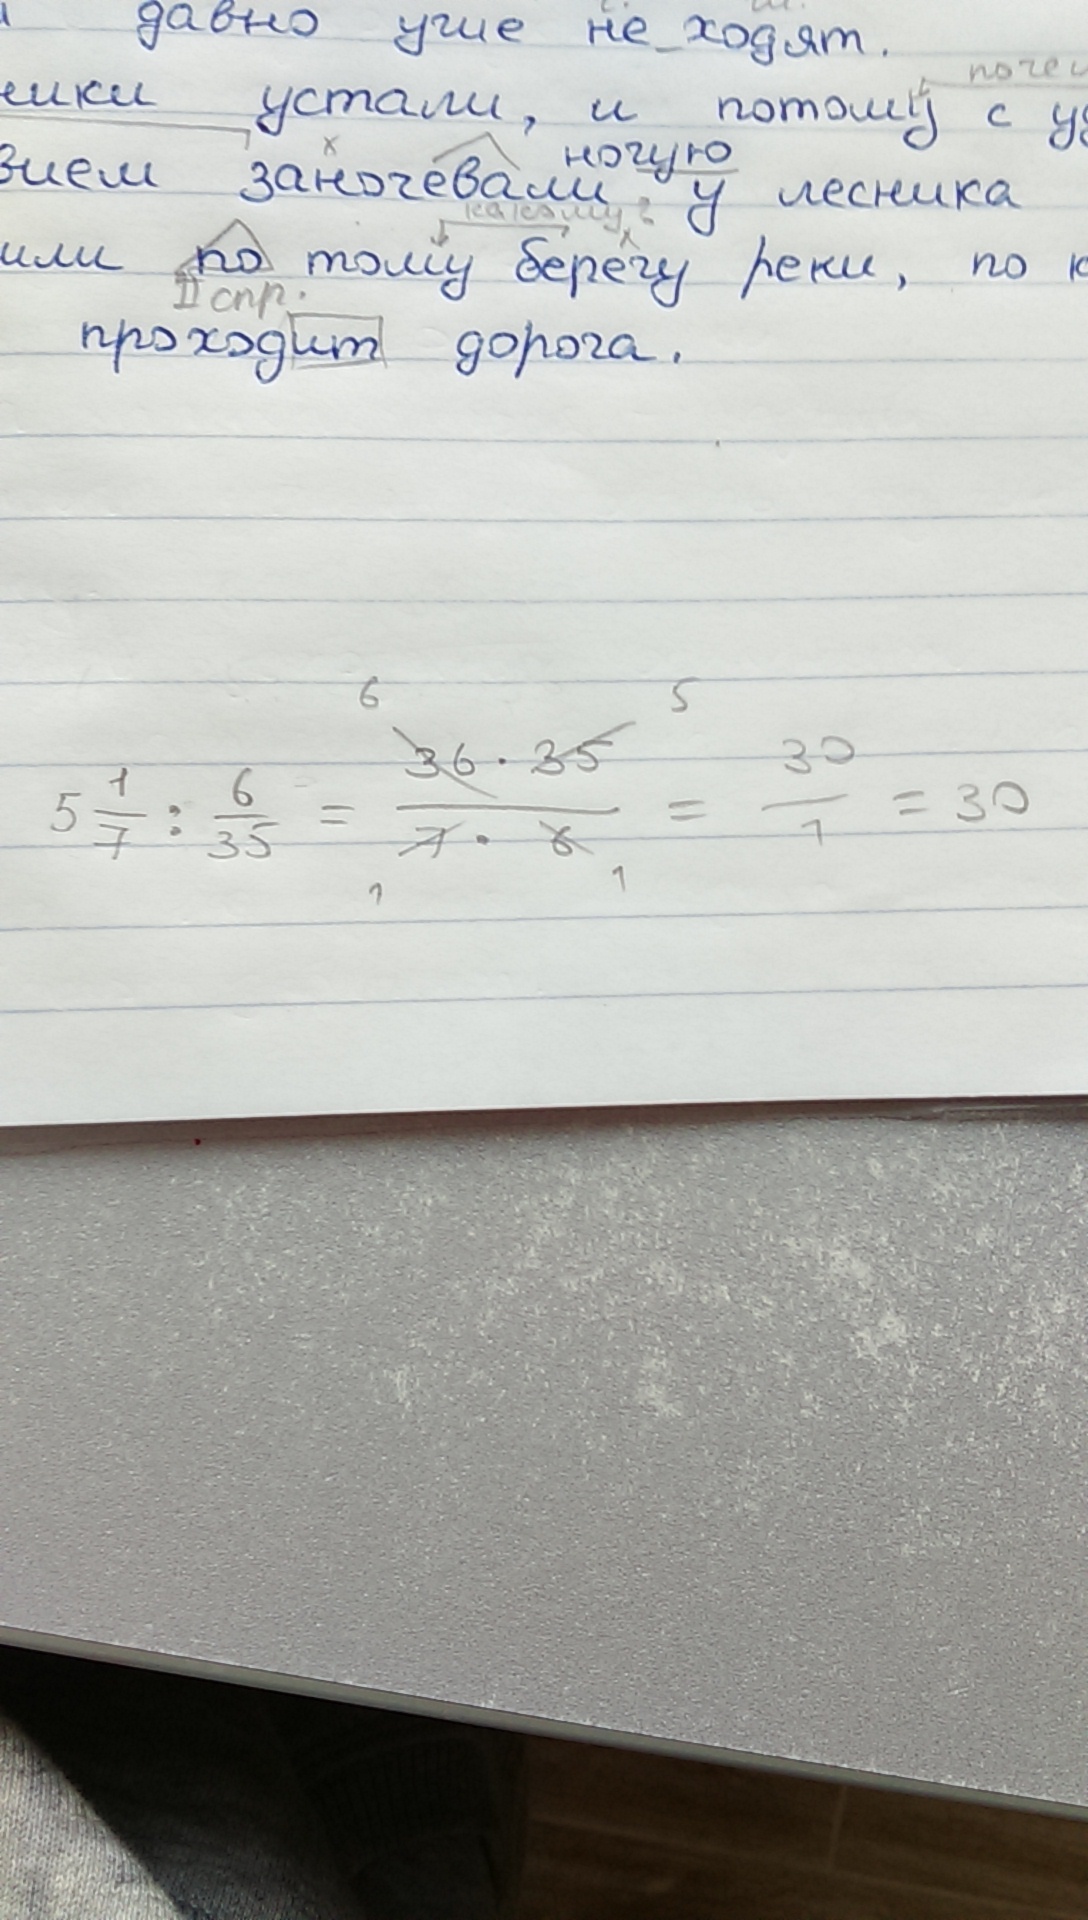 давно уже не ходят.
ники устали, и потому с
вием заночевали у лесника
ночую
какому?
или по тому берегу реки, по к
II спр.
проходит дорога.
5 1/7 : 6/35 = 36 · 35 / 7 · 6 = 30/1 = 30
6 5
1 1